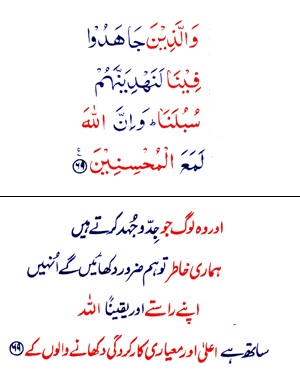 وَالَّذِيْنَ جَاهَدُوْا
فِيْنَا لَنَهْدِيَنَّهُمْ
سُبُلَنَا ؕ وَاِنَّ اللّٰهَ
لَمَعَ الْمُحْسِنِيْنَ ﴿۶۹﴾
اور وہ لوگ جو جِدّ و جُہد کرتے ہیں
ہماری خاطر تو ہم ضرور دکھائیں گے اُنہیں
اپنے راستے اور یقیناً اللہ
ساتھ ہے اعلیٰ اور معیاری کارکردگی دکھانے والوں کے ﴿۶۹﴾